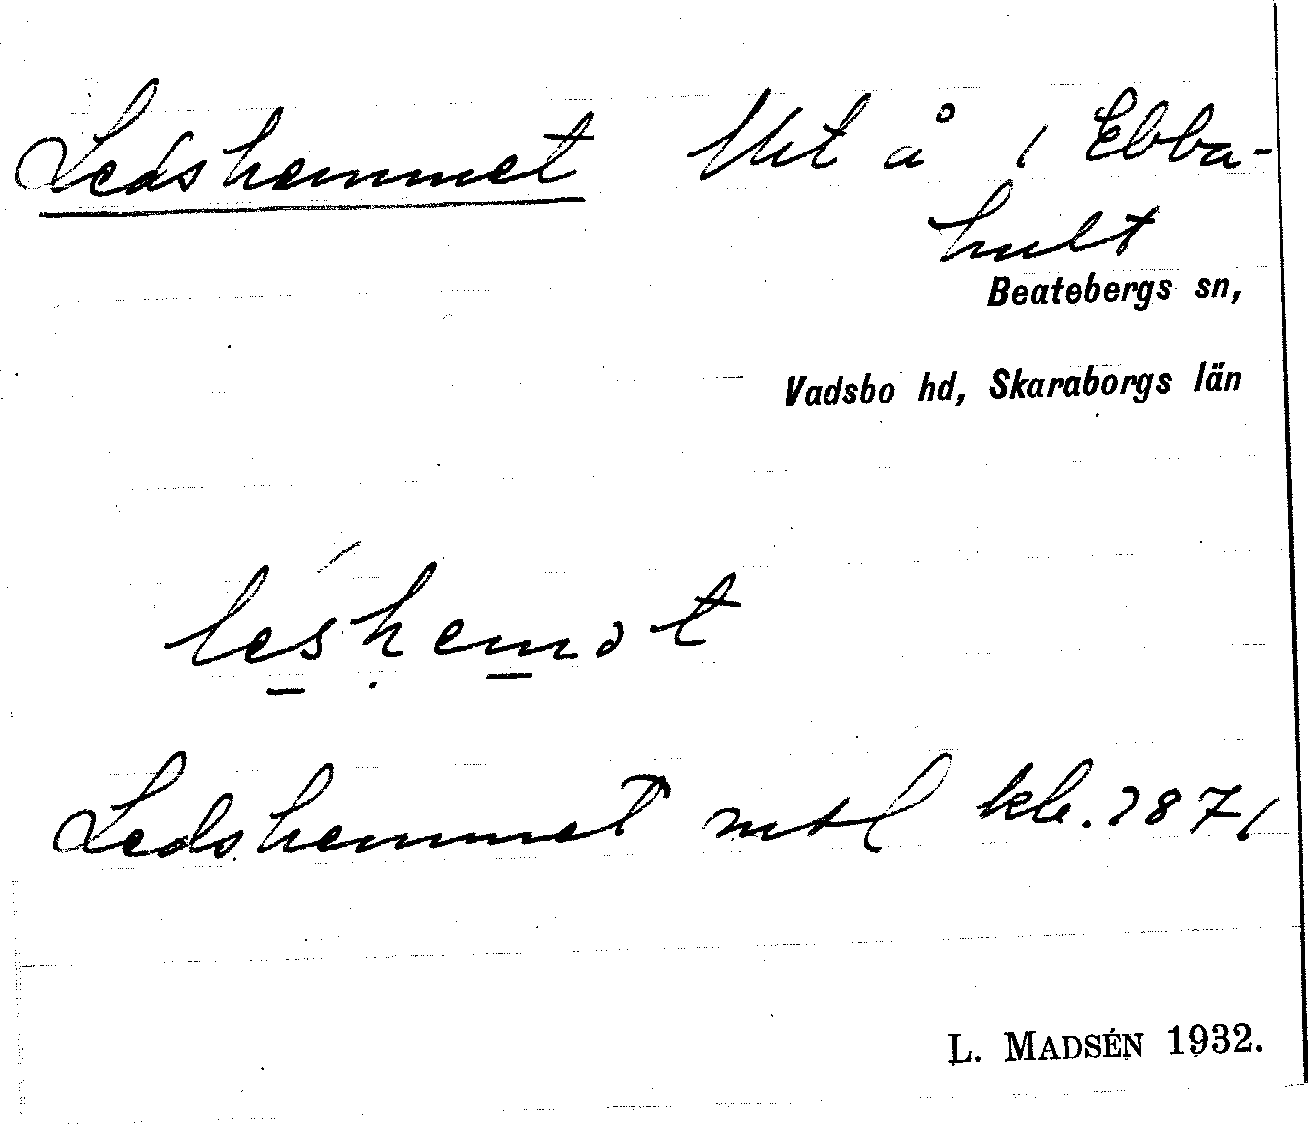 Ledshemmet Utl å 1 Ebba-
hult
Beatebergs sn,
Vadsbo hd, Skaraborgs län
leshemət
Ledshemmet mtl kb. 1871
L. MADSÉN 1932.